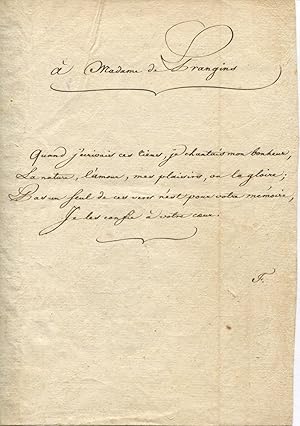 à Madame de Frangins
Quand j'écrivais ces liens, je chantais mon bonheur,
La nature, l'amour, mes plaisirs, ou la gloire;
Pas un seul de ces vers n'est pour votre mémoire,
Je les confie à votre cœur.
F.